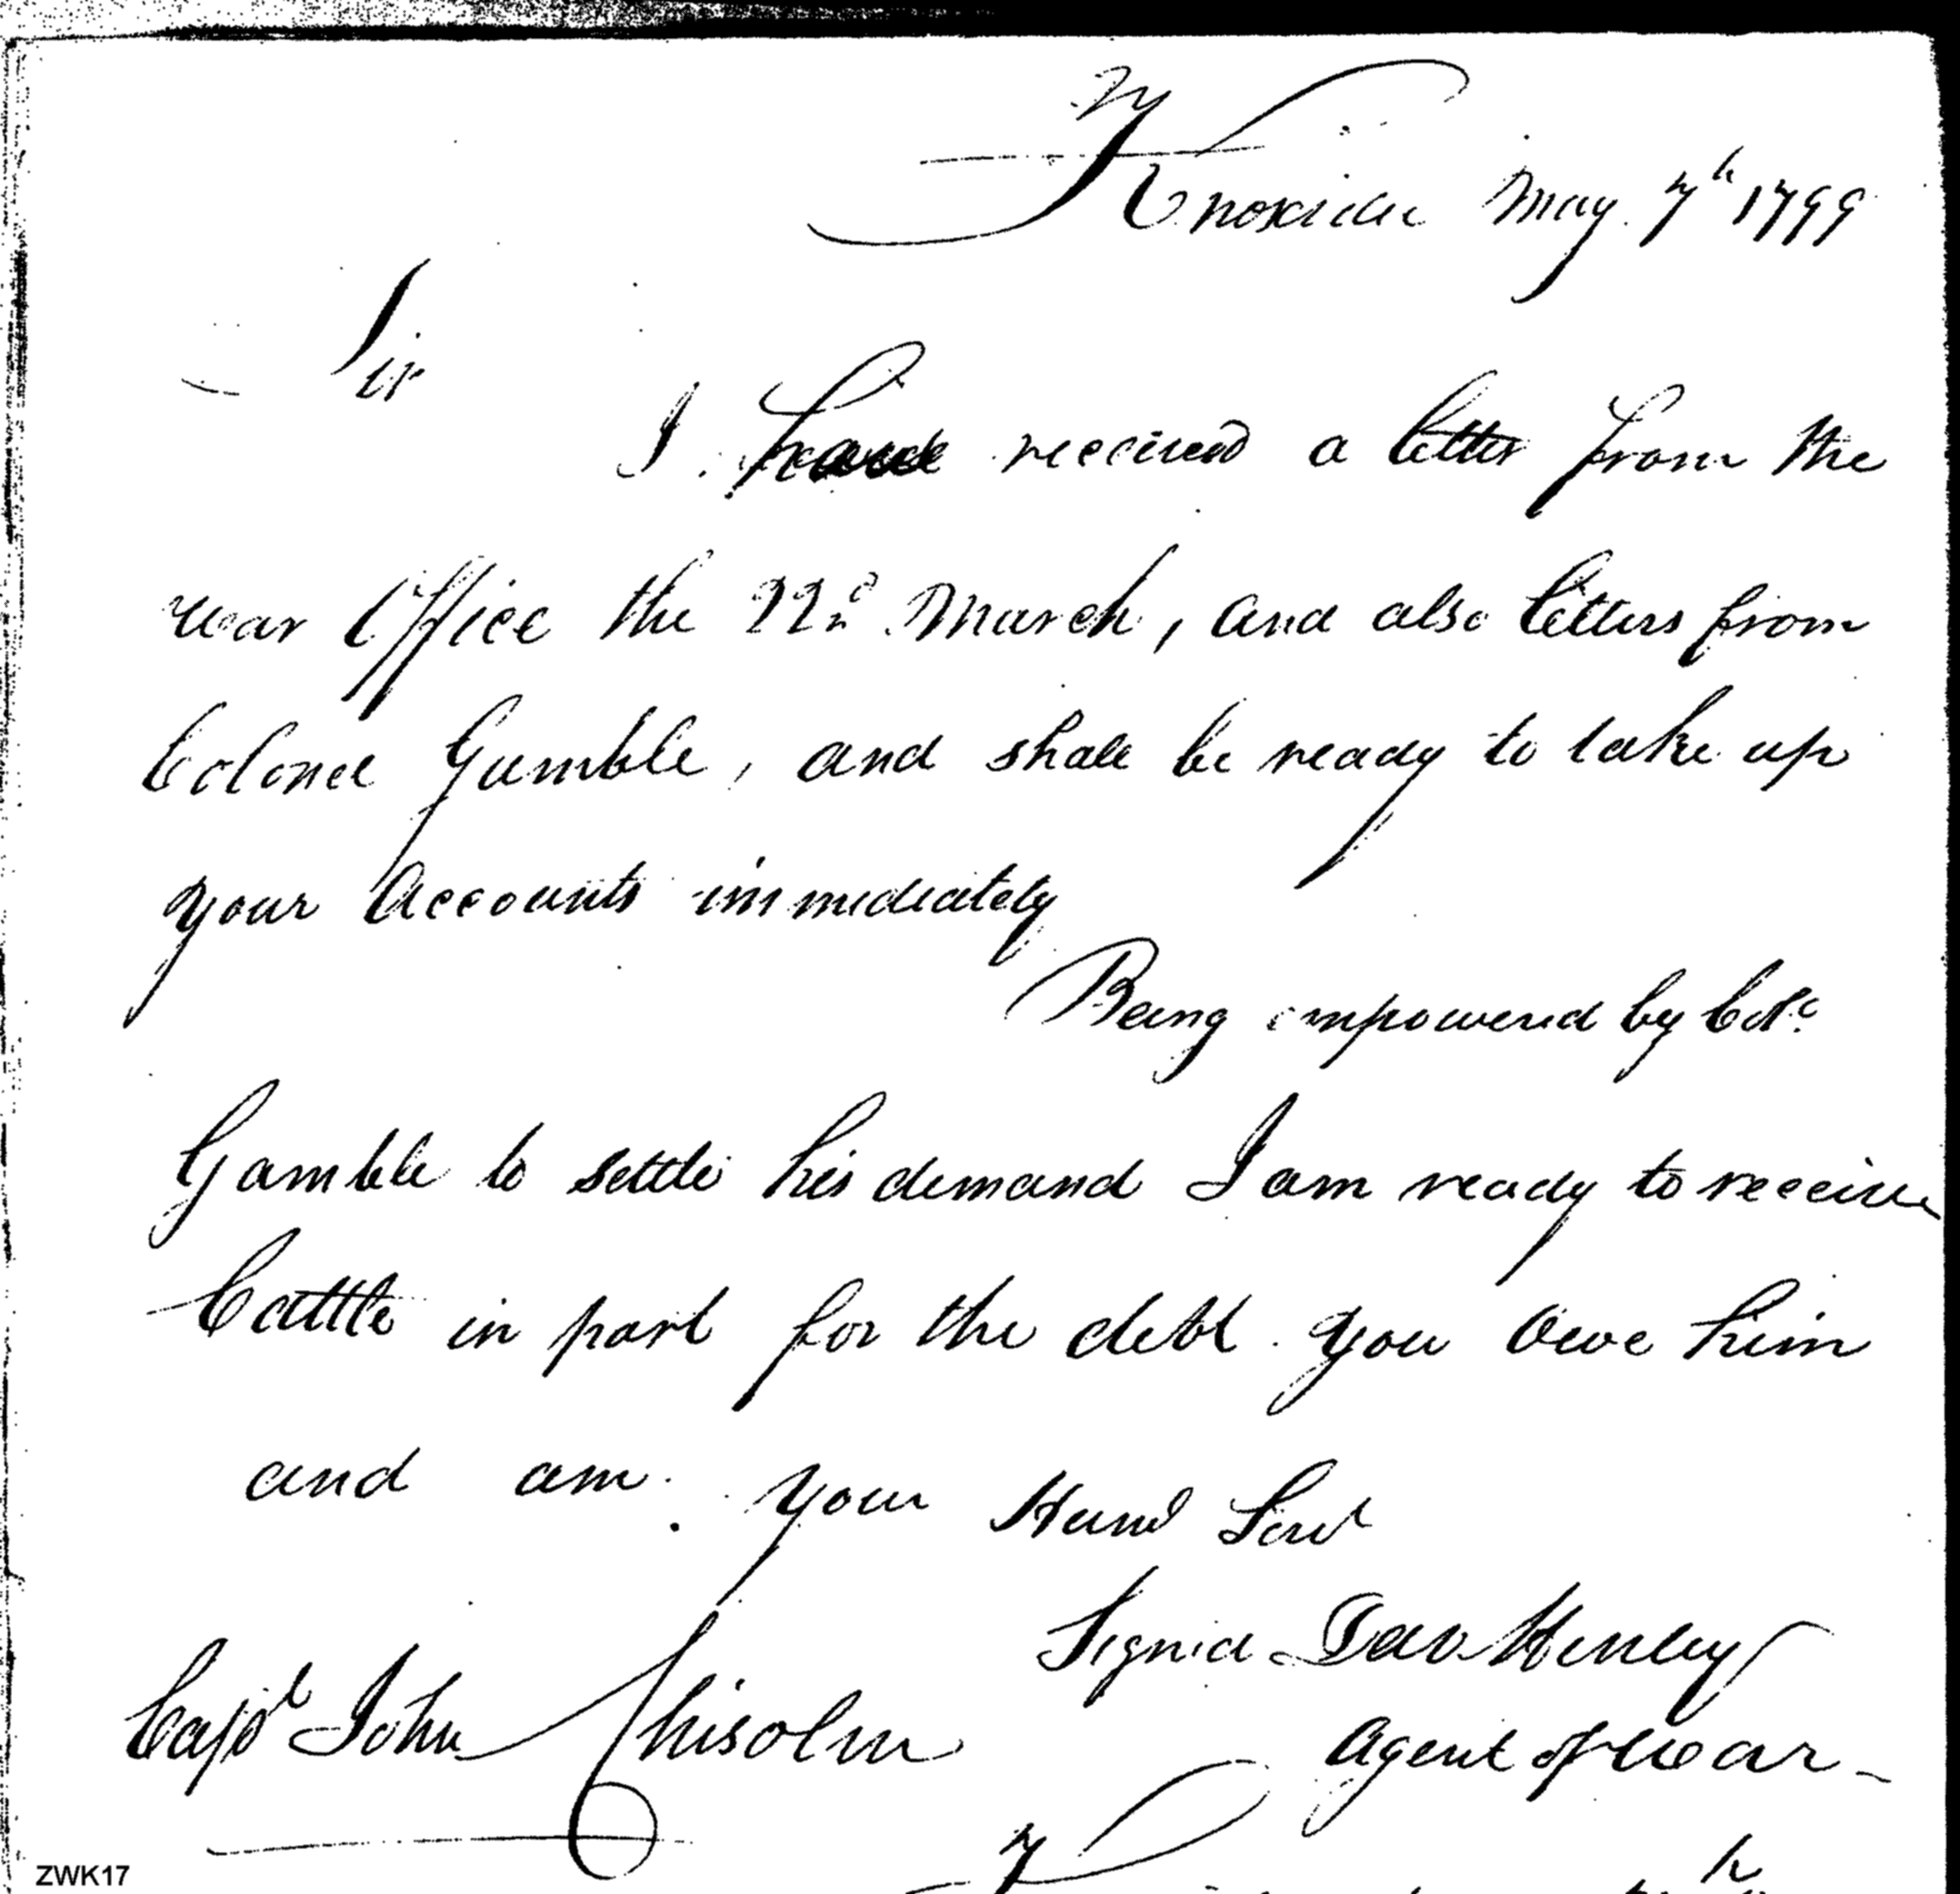 Knoxville May 7th 1799
Sir
I have received a letter from the
war Office the 22nd March, and also letters from
Colonel Gamble, and shall be ready to take up
your Accounts immediately
Being empowered by Colo.
Gamble to settle his demand I am ready to receive
Cattle in part for the debt you Owe him
and am your Hum Servt
Signed Dav Henley
Capt John Chisolm
Agent of War
ZWK17